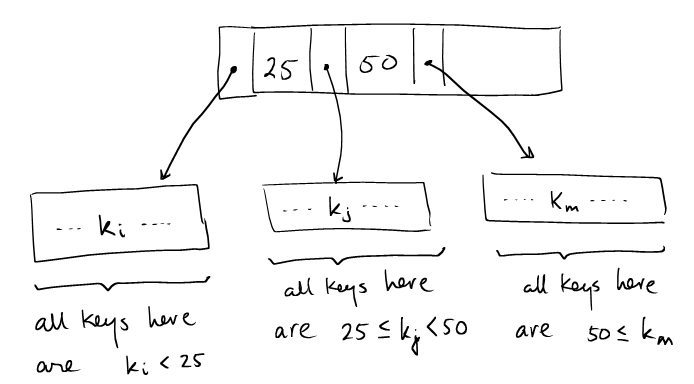 25 50
--- ki ----
--- kj -----
---- Km -----
all keys here
are ki < 25
all keys here
are 25 ≤ kj < 50
all keys here
are 50 ≤ km